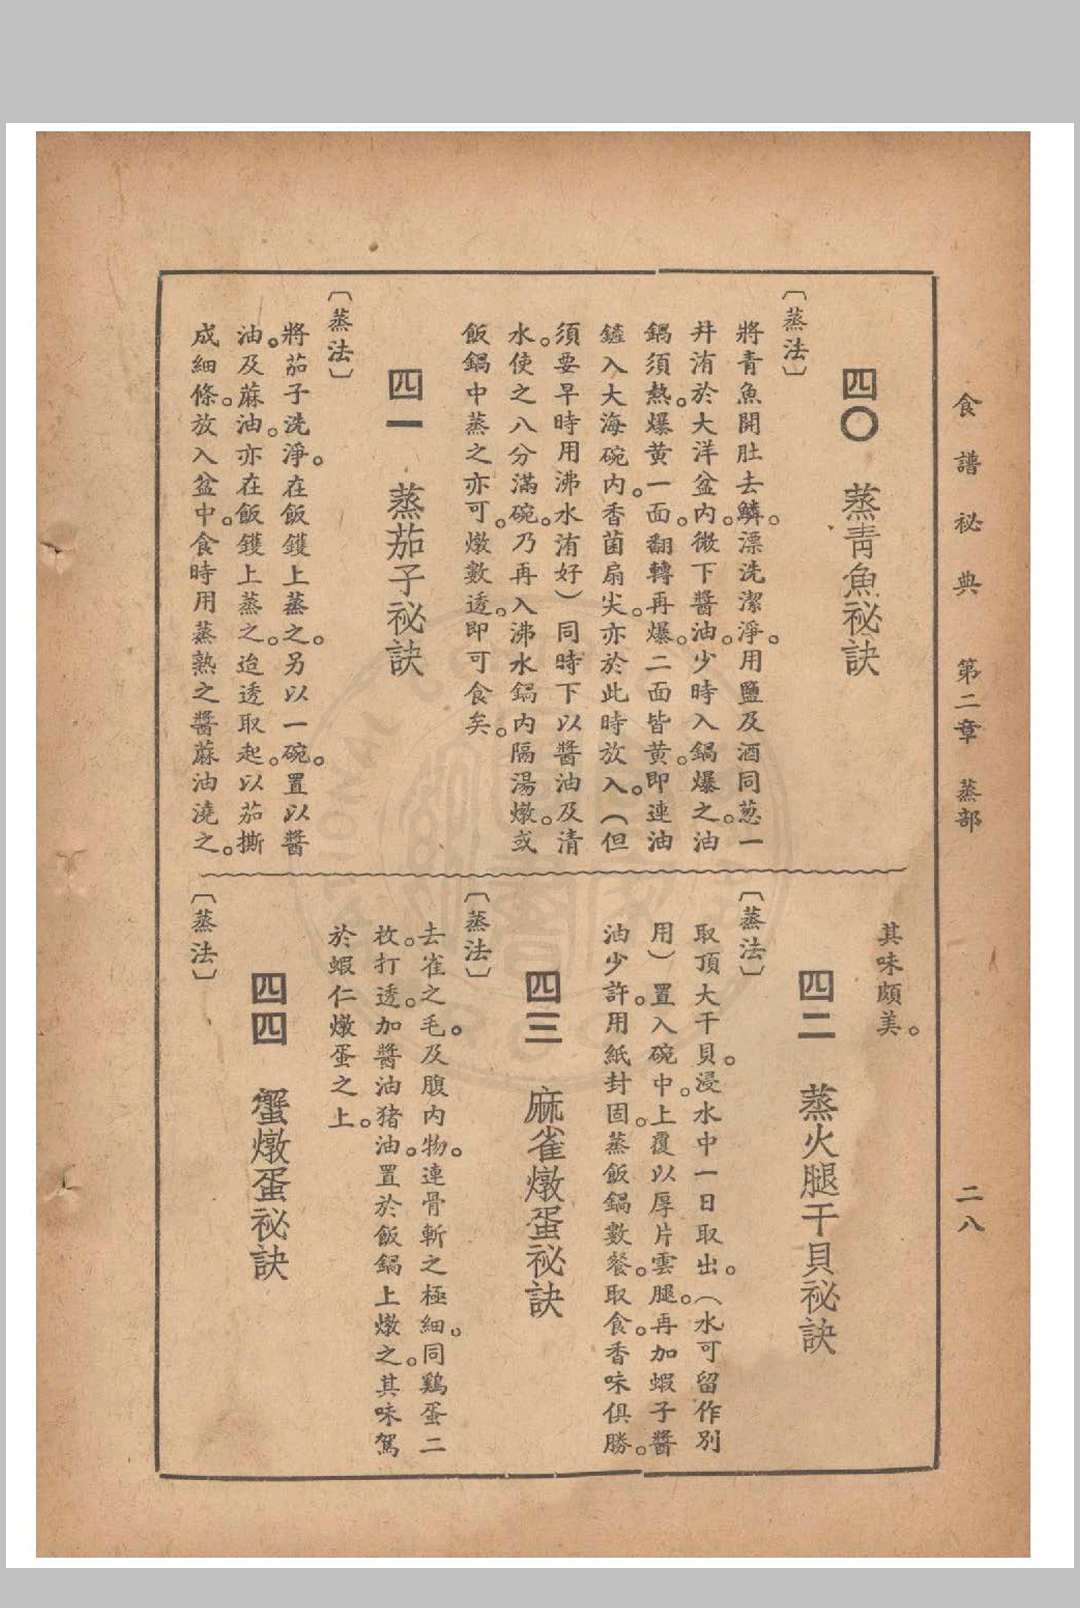 食譜祕典　第二章　蒸部　二八
四〇　蒸青魚祕訣
〔蒸法〕
將青魚開肚去鱗。漂洗潔淨。用鹽及酒同葱一
井洧於大洋盆內。微下醬油。少時入鍋爆之。油
鍋須熱。爆黄一面。翻轉再爆。二面皆黄。即連油
鏟入大海碗內。香菌扇尖。亦於此時放入。（但
須要早時用沸水洧好）同時下以醬油及清
水。使之八分滿碗。乃再入沸水鍋內隔湯燉。或
飯鍋中蒸之亦可。燉數透。即可食矣。
四一　蒸茄子祕訣
〔蒸法〕
將茄子洗淨。在飯鑊上蒸之。另以一碗。置以醬
油。及蔴油。亦在飯鑊上蒸之。迨透取起。以茄撕
成細條。放入盆中。食時用蒸熟之醬蔴油澆之。
其味頗美。
四二　蒸火腿干貝祕訣
〔蒸法〕
取頂大干貝。浸水中一日取出。（水可留作別
用）置入碗中。上覆以厚片雲腿。再加蝦子醬
油少許。用紙封固。蒸飯鍋數餐。取食。香味俱勝。
四三　麻雀燉蛋祕訣
〔蒸法〕
去雀之毛。及腹內物。連骨斬之極細。同鷄蛋二
枚。打透。加醬油猪油。置於飯鍋上燉之。其味駕
於蝦仁燉蛋之上。
四四　蟹燉蛋祕訣
〔蒸法〕